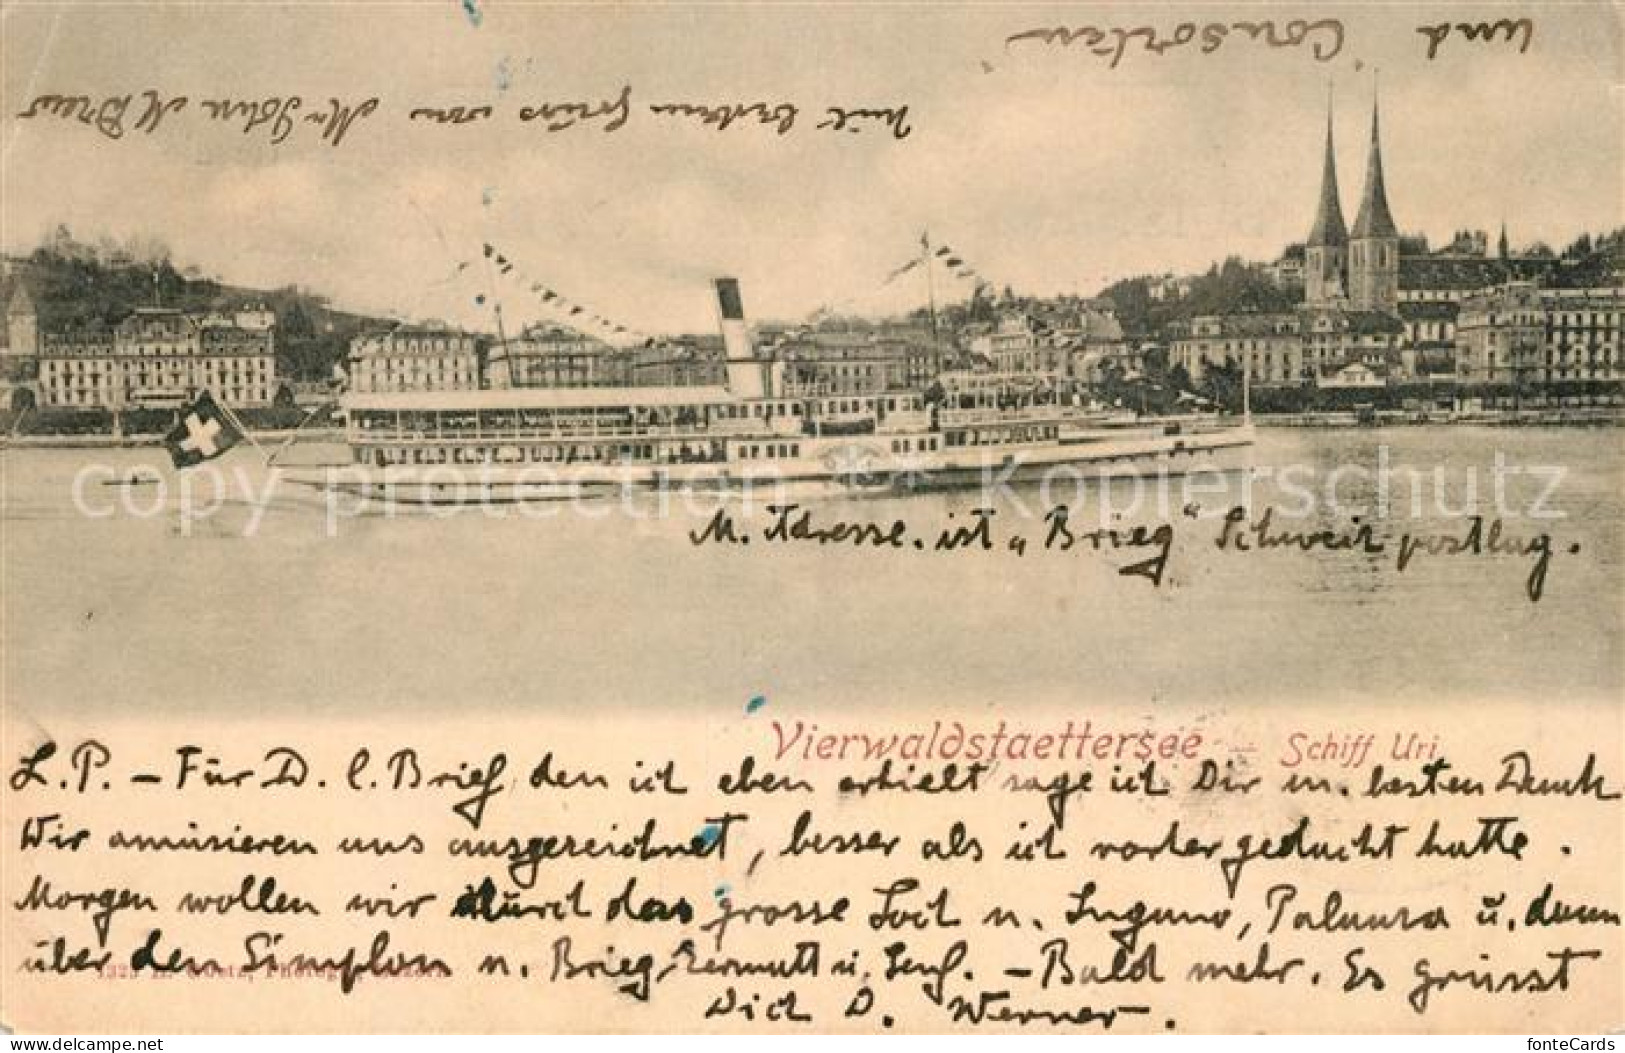 und "Consorten"
mit bestem Gruss von Mr John M Drew
copyright protection Kopierschutz
M. Adresse. ist „Brieg“ Schweiz postlag.
Vierwaldstaettersee — Schiff Uri
L. P. – Für D. l. Brief den ich eben erhielt sage ich Dir m. besten Dank
Wir amüsieren uns ausgezeichnet, besser als ich vorher gedacht hatte.
Morgen wollen wir durch das grosse Loch n. Lugano, Palanza u. dann
über den Simplon n. Brieg, Zermatt u. Genf. – Bald mehr. Es grüsst
Dich D. Werner.
www.delcampe.net
fonteCards